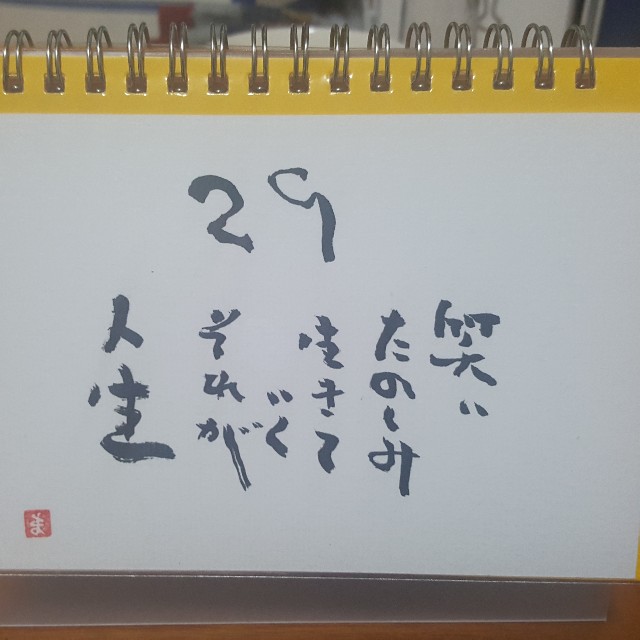 29
笑い
たのしみ
生きて
いく
それが
人生